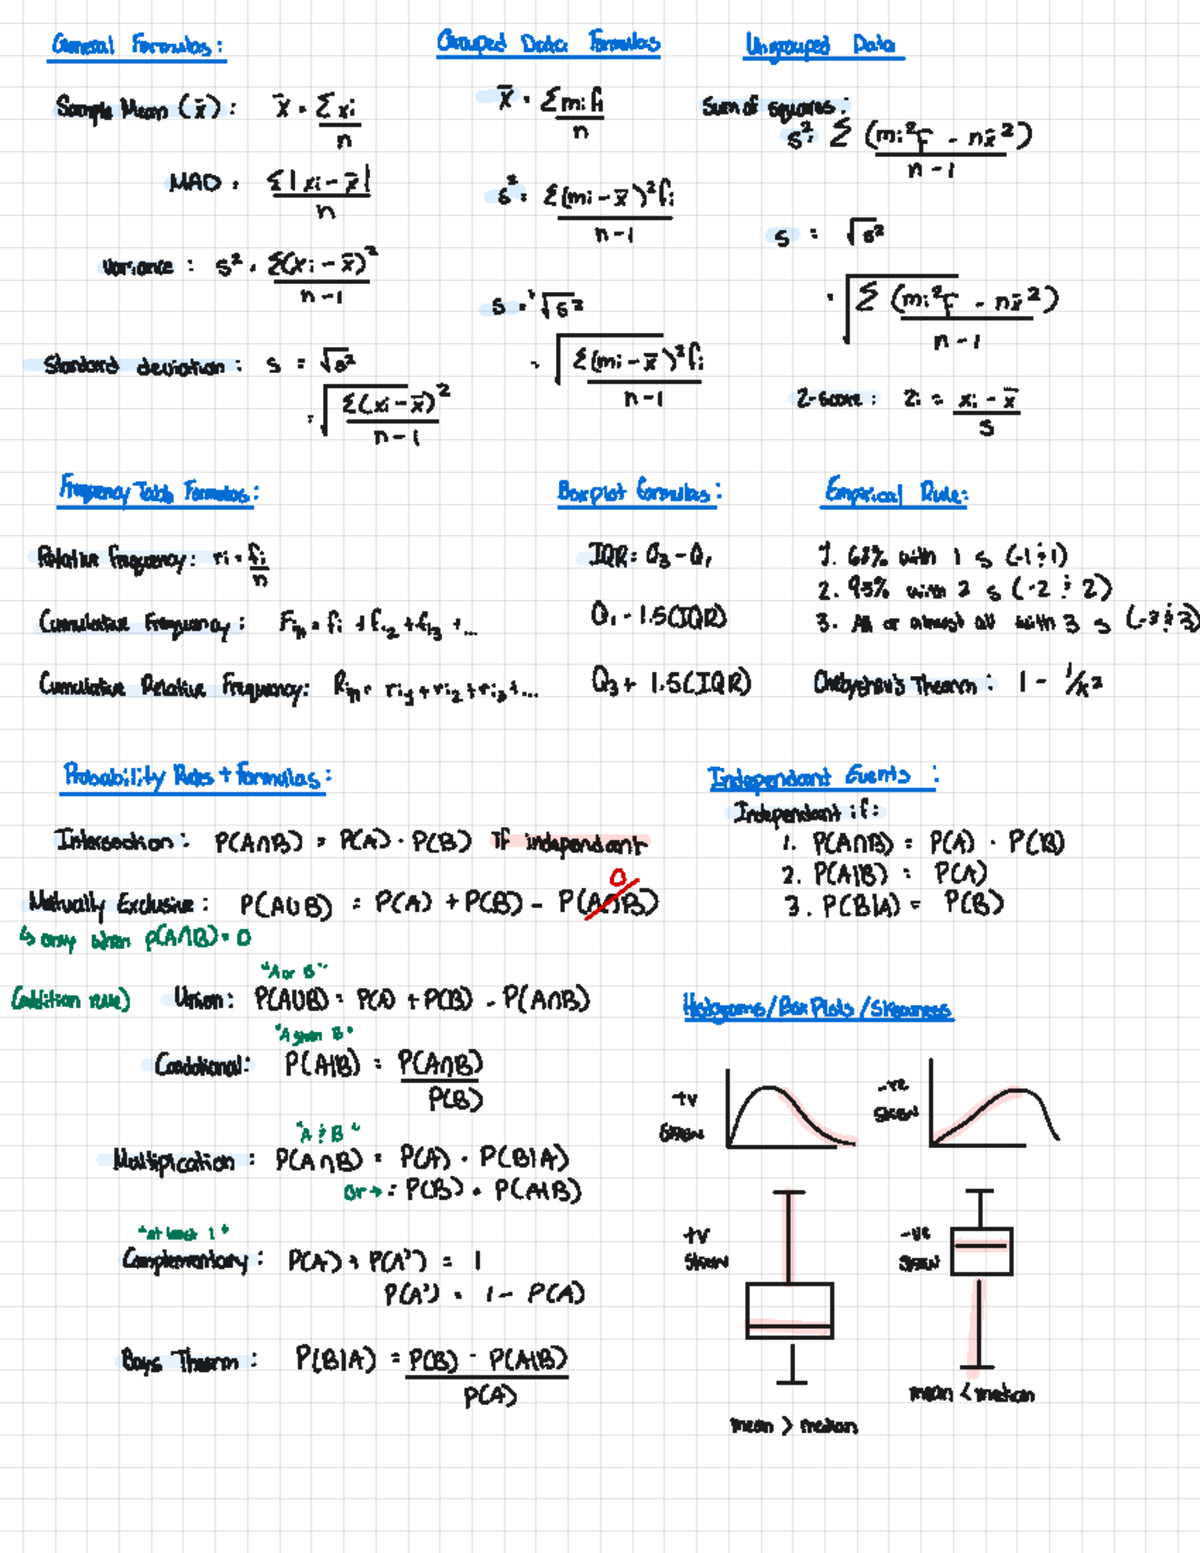 General Formulas:
Sample Mean (x̄): x̄ = Σxi / n
MAD = Σ|xi - x̄| / n
Variance: s² = Σ(xi - x̄)² / n-1
Standard deviation: s = √s²
= √(Σ(xi - x̄)² / n-1)
Grouped Data Formulas
x̄ = Σmifi / n
s² = Σ(mi - x̄)²fi / n-1
s = √s²
= √(Σ(mi - x̄)²fi / n-1)
Ungrouped Data
Sum of squares:
s² = Σ (mi²F - nx̄²) / n-1
s = √s²
= √(Σ (mi²F - nx̄²) / n-1)
Z-score: Zi = xi - x̄ / s
Frequency Table Formulas:
Relative Frequency: ri = fi / n
Cumulative Frequency: Fin = fi + fi2 + fi3 + ...
Cumulative Relative Frequency: Rin = ri1 + ri2 + ri3 + ...
Boxplot formulas:
IQR = Q3 - Q1
Q1 - 1.5(IQR)
Q3 + 1.5(IQR)
Empirical Rule:
1. 68% with 1 s (-1 & 1)
2. 95% with 2 s (-2 & 2)
3. All or almost all with 3 s (-3 & 3)
Chebyshev's Theorm: 1 - 1/k²
Probability Rules + Formulas:
Intersection: P(A∩B) = P(A) · P(B) If independant
Mutually Exclusive: P(A∪B) = P(A) + P(B) - P(A∩B) 0
↳ only when P(A∩B) = 0
"A or B"
(addition rule) Union: P(A∪B) = P(A) + P(B) - P(A∩B)
"A given B"
Conditional: P(A|B) = P(A∩B) / P(B)
"A & B"
Multiplication: P(A∩B) = P(A) · P(B|A)
or → = P(B) · P(A|B)
"at least 1"
Complementary: P(A) + P(A') = 1
P(A') = 1 - P(A)
Bays Theorm: P(B|A) = P(B) · P(A|B) / P(A)
Independant Events:
Independant if:
1. P(A∩B) = P(A) · P(B)
2. P(A|B) = P(A)
3. P(B|A) = P(B)
Histograms/Box Plots/Skewness
+v skew
-ve skew
+v skew
-ve skew
mean < median
mean > median